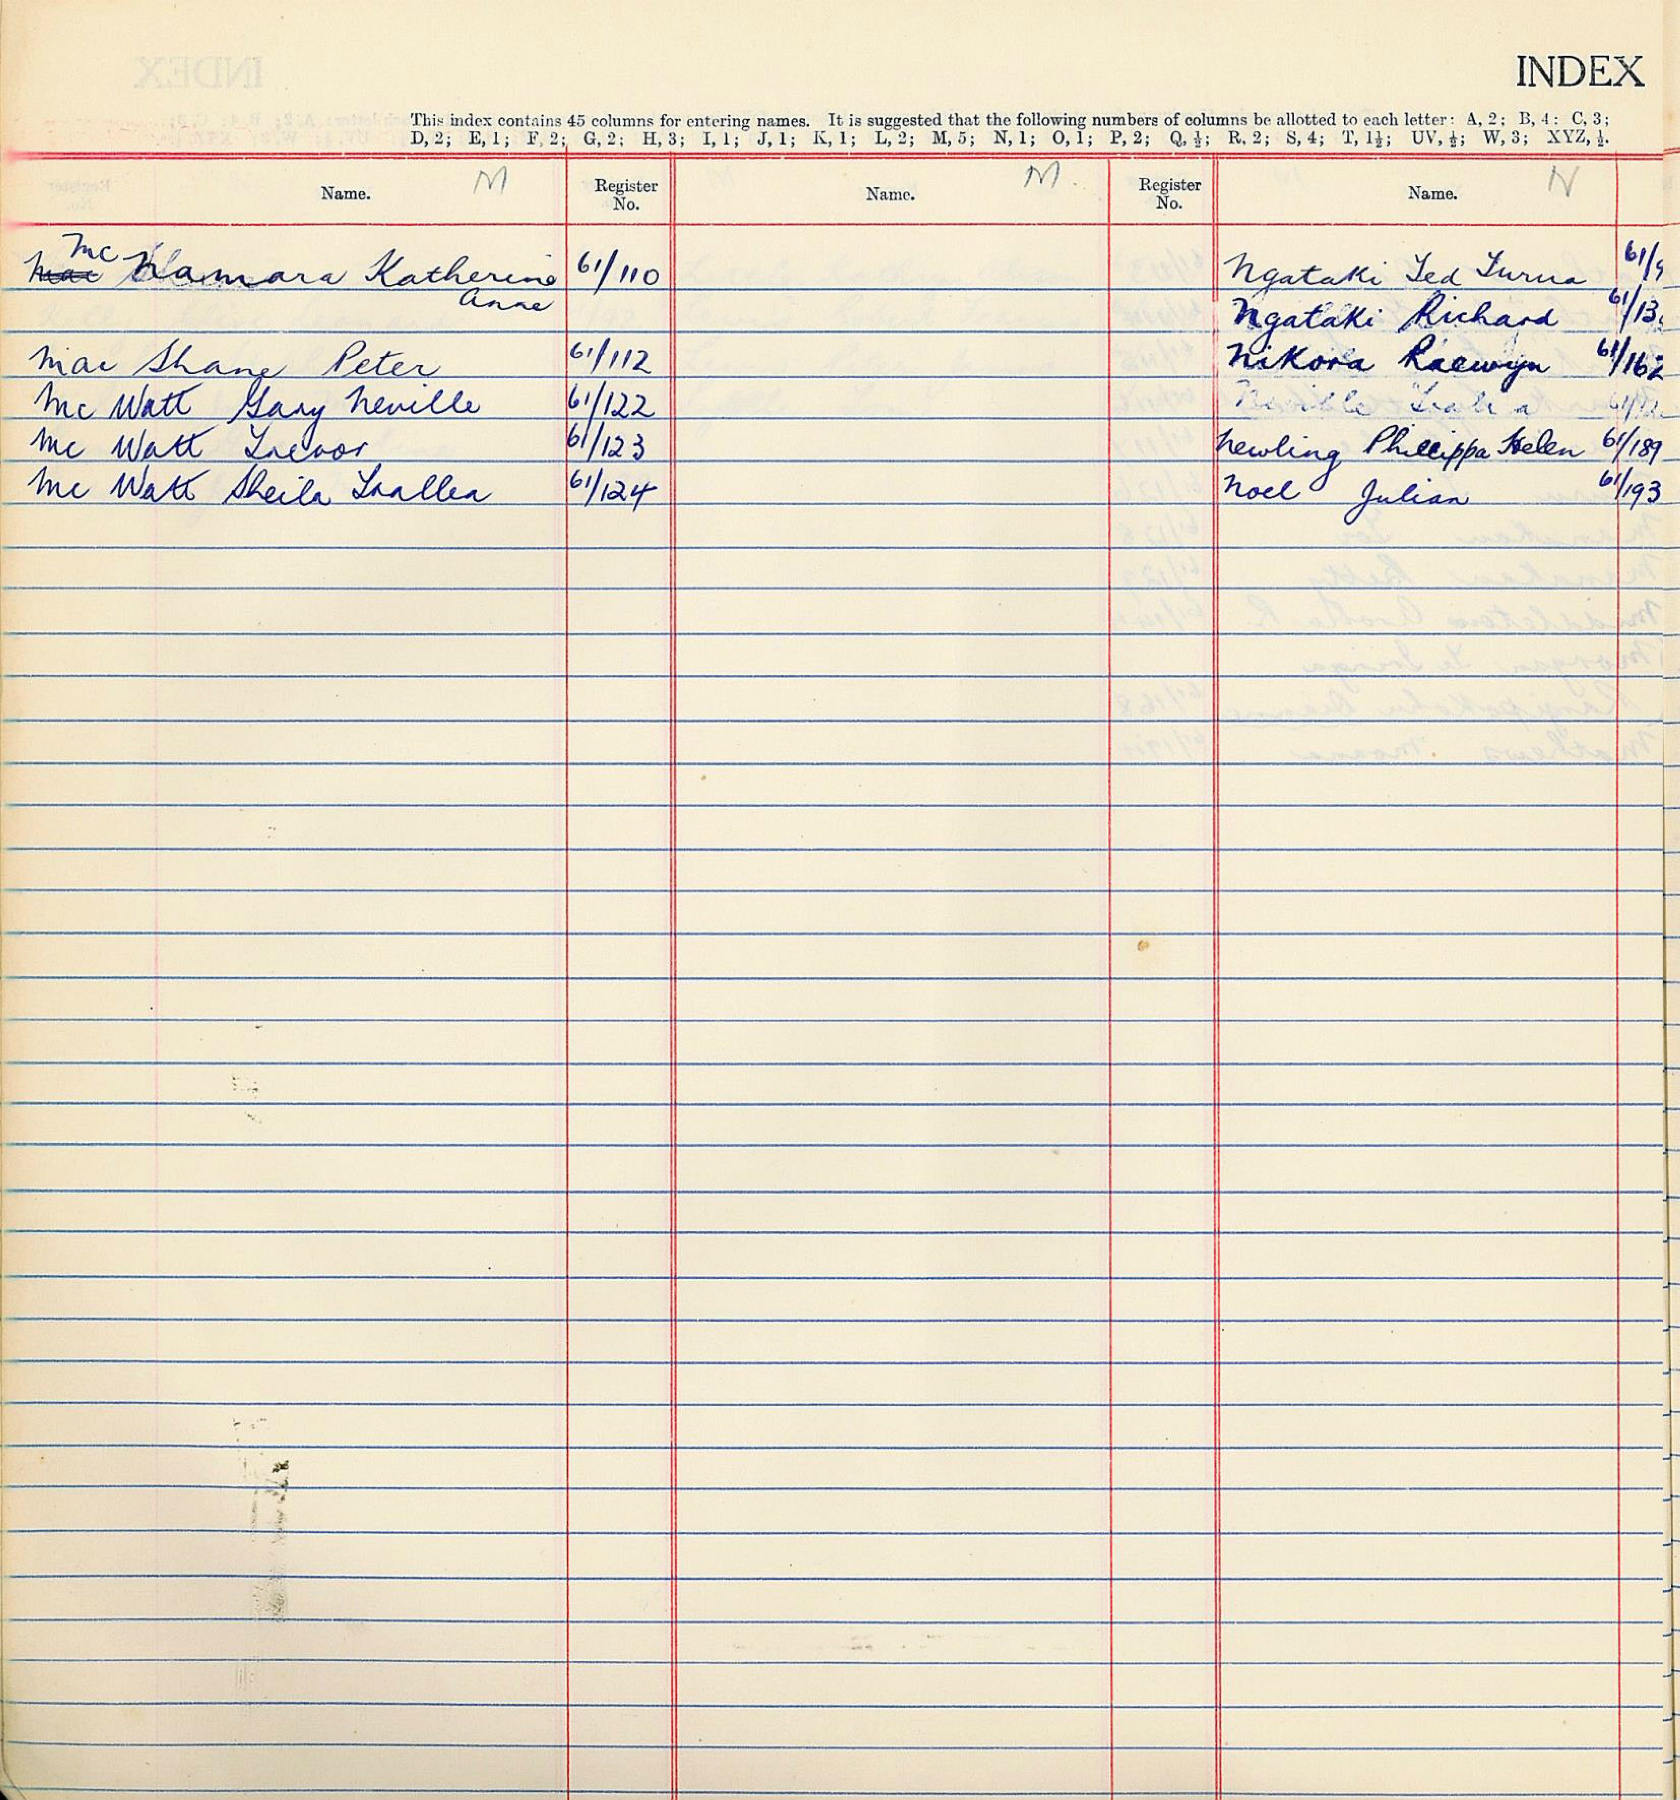 INDEX
This index contains 45 columns for entering names. It is suggested that the following numbers of columns be allotted to each letter: A, 2; B, 4: C, 3;
D, 2; E, 1; F, 2; G, 2; H, 3; I, 1; J, 1; K, 1; L, 2; M, 5; N, 1; O, 1; P, 2; Q, ½; R, 2; S, 4; T, 1½; UV, ½; W, 3; XYZ, ½.
Name. M Register No. Name. M. Register No. Name. N
Mc
Mac Namara Katherine 61/110
Anne
Mac Shane Peter 61/112
Mc Watt Gary Neville 61/122
Mc Watt Trevor 61/123
Mc Watt Sheila 61/124
Ngataki Ted Turua 61/9
Ngataki Richard 61/13
Nikora Raewyn 61/162
Neville
Newling Phillippa Helen 61/189
Noel Julian 61/193